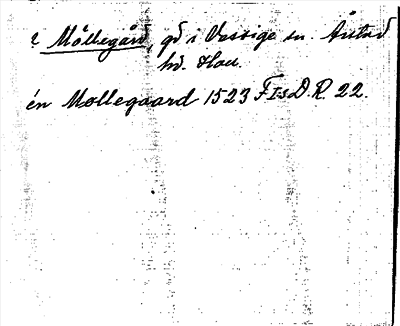 ? Möllegård, gd i Vessige sn. Årstad
hd. Hall.
én Mollegaard 1523 F I:s D. R. 22.